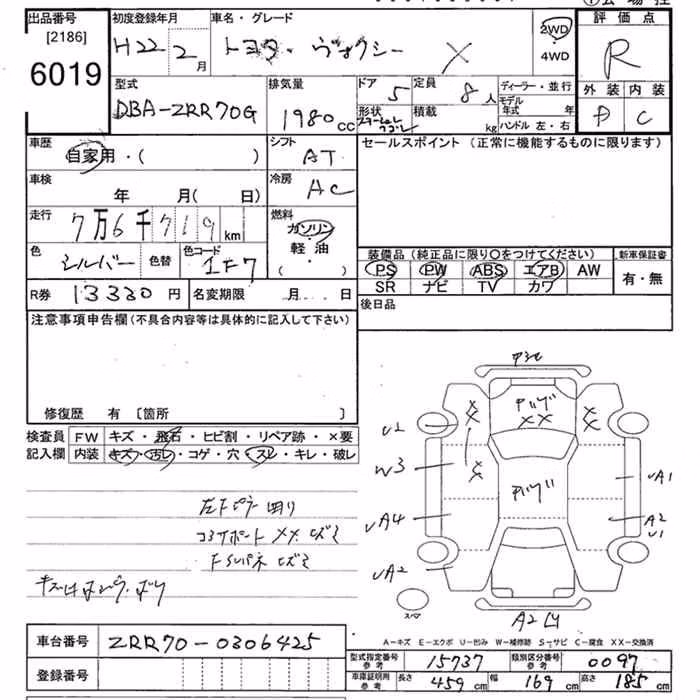 出品番号 初度登録年月 車名・グレード 評価点
[2186] H22 2月 トヨタ・ヴォクシー X 2WD R
6019 4WD
型式 排気量 ドア 定員 ディーラー・並行 外装 内装
DBA-ZRR70G 1980cc 5 8人 モデル年式 年 D C
形状 積載 kg ハンドル 左・右
車歴 自家用・( ) シフト AT セールスポイント (正常に機能するものに限ります)
車検 年 月(日) 冷房 AC
走行 7万6千719km 燃料 ガソリン
軽・油
( ・ )
色 シルバー 色替 色コード 1F7
装備品 (純正品に限り〇をつけてください) 新車保証書
PS PW ABS エアB AW 有・無
SR ナビ TV カワ
R券 13330円 名変期限 月 日 後日品
注意事項申告欄(不具合内容等は具体的に記入して下さい)
修復歴 有 〔箇所 〕
検査員 FW キズ・飛石・ヒビ割・リペア跡・×要
記入欄 内装 キズ・汚レ・コゲ・穴・スレ・キレ・破レ
コアサポート XX ヒズミ
XX
XX
XX
XX
U1
W3
UA4
UA2
UA1
A2
U1
スペア
A2
A-キズ E-エクボ U-凹み W-補修跡 S-サビ C-腐食 XX-交換済
車台番号 ZRR70-0306425
型式指定番号 参考 15737 類別区分番号 参考 0097
登録番号
車庫証明用 参考 長さ 459cm 幅 169cm 高さ 185cm